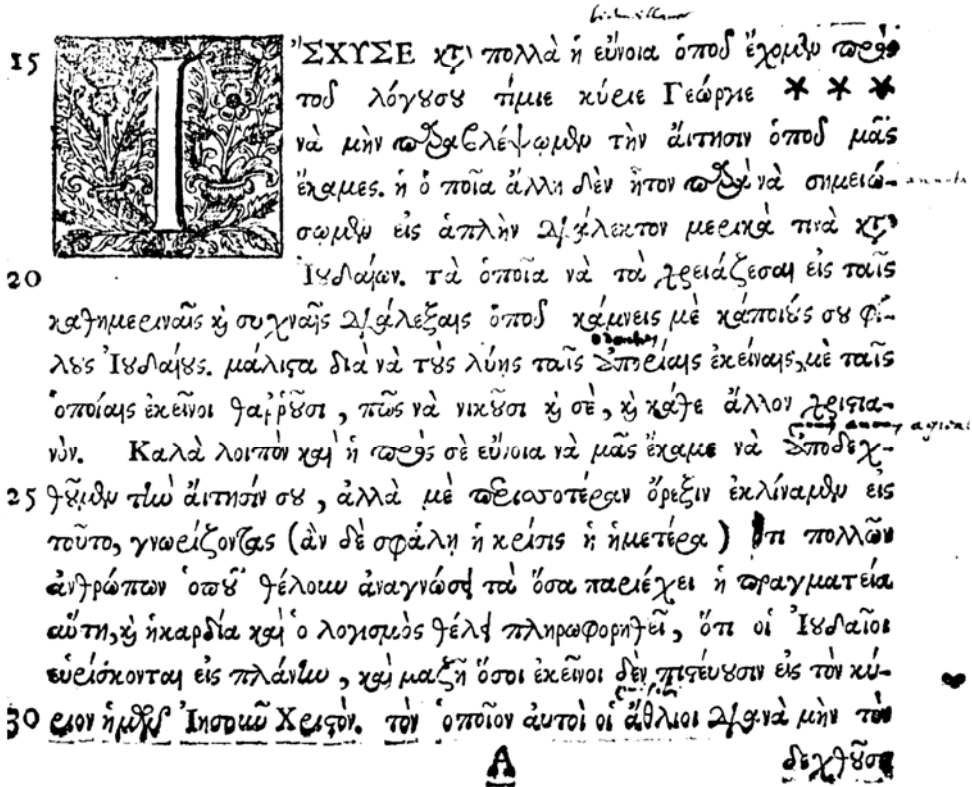 15 ἼΣΧΥΣΕ κτ' πολλὰ ἡ εὔνοια ὁποῦ ἔχομεν πρὸς
τοῦ λόγουσου τίμιε κύριε Γεώργιε * * *
νὰ μὴν παραβλέψωμεν τὴν ἄιτησιν ὁποῦ μᾶς
ἔκαμες. ἡ ὁ ποῖα ἄλλη δὲν ἦτον παρὰ νὰ σημειώ-
σωμεν εἰς ἁπλὴν διάλεκτον μερικὰ τινὰ κτ'
20 Ἰουδαίων. τὰ ὁποῖα νὰ τὰ χρειάζεσαι εἰς ταῖς
καθημεριναῖς καὶ συχναῖς διάλεξαις ὁποῦ κάμνεις με κάποιους σου φί-
λους Ἰουδαίους. μάλιστα διὰ νὰ τοὺς λύῃς ταῖς ἀπορίαις ἐκείναις, με ταῖς
ὁποίαις ἐκεῖνοι θαῤῥοῦσι, πῶς νὰ νικοῦσι καὶ σὲ, καὶ κάθε ἄλλον χριστια-
νόν. Καλὰ λοιπὸν καὶ ἡ πρὸς σὲ εὔνοια νὰ μᾶς ἔκαμε νὰ ἀποδεχ-
25 θοῦμεν τὴν ἄιτησίν σου, ἀλλὰ μὲ περισσοτέραν ὄρεξιν ἐκλίναμεν εἰς
τοῦτο, γνωρίζοντας (ἂν δὲ σφάλῃ ἡ κρίσις ἡ ἡμετέρα) ὅτι πολλῶν
ἀνθρώπων ὁποῦ θέλουν ἀναγνώσει τὰ ὅσα παριέχει ἡ πραγματεία
αὕτη, καὶ ἡκαρδία καὶ ὁ λογισμὸς θέλει πληρωφορηθεῖ, ὅτι οἱ Ἰουδαῖοι
εὑρίσκονται εἰς πλάνην, καὶ μαζῆ ὅσοι ἐκεῖνοι δὲν πιστεύουσιν εἰς τὸν κύ-
30 ριον ἡμῶν Ἰησοῦν Χριστόν. τὸν ὁποῖον ἀυτοὶ οἱ ἄθλιοι διανὰ μὴν τὸν
A δεχθοῦσι